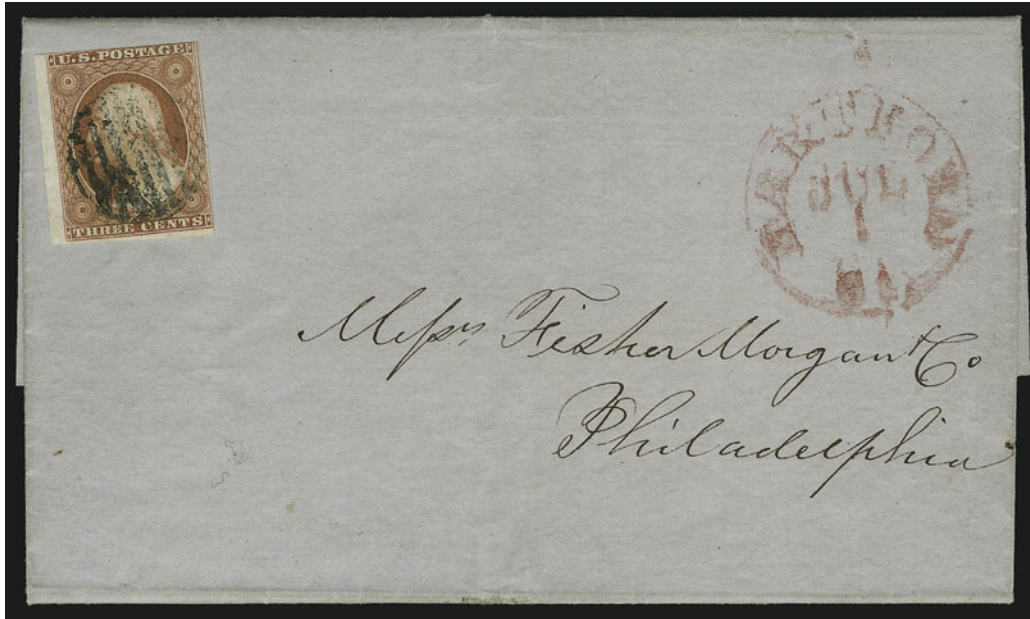 U.S. POSTAGE
THREE CENTS
HARTFORD
JUL
1
Messrs Fisher Morgan & Co
Philadelphia